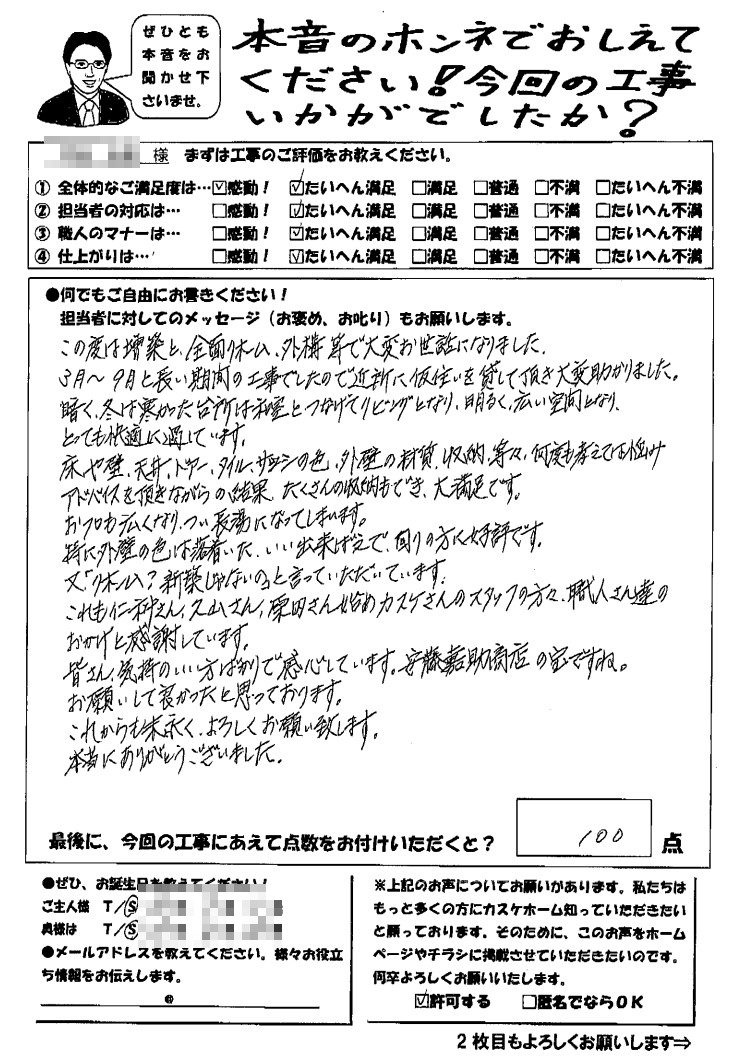 ぜひとも
本音をお
聞かせ下
さいませ。
本音のホンネでおしえて
ください!今回の工事
いかがでしたか?
様 まずは工事のご評価をお教えください。
① 全体的なご満足度は…☑感動! ☑たいへん満足 □満足 □普通 □不満 □たいへん不満
② 担当者の対応は… □感動! ☑たいへん満足 □満足 □普通 □不満 □たいへん不満
③ 職人のマナーは… □感動! ☑たいへん満足 □満足 □普通 □不満 □たいへん不満
④ 仕上がりは… □感動! ☑たいへん満足 □満足 □普通 □不満 □たいへん不満
●何でもご自由にお書きください!
担当者に対してのメッセージ(お褒め、お叱り)もお願いします。
この度は増築と、全面リホーム、外構等で大変お世話になりました。
3月〜9月と長い期間の工事でしたので近所に仮住いを貸して頂き大変助かりました。
暗く、冬は寒かった台所は和室とつなげてリビングとなり、明るく、広い空間となり、
とっても快適に過しています。
床や壁、天井、ドアー、タイル、サッシの色、外壁の材質、収納、等々、何度も考えては悩み
アドバイスを頂きながらの結果、たくさんの収納もでき、大満足です。
おフロも広くなり、つい長湯になってしまいます。
特に外壁の色は落着いた、いい出来ばえで、回りの方に好評です。
又「リホーム?新築じゃないの」と言っていただいています。
これも仁科さん、久山さん、原田さん始めカスケさんのスタッフの方々、職人さん達の
おかげと感謝しています。
皆さん、気持のいい方ばかりで感心しています。安藤嘉助商店の宝ですね。
お願いして良かったと思っております。
これからも末永く、よろしくお願い致します。
本当にありがとうございました。
最後に、今回の工事にあえて点数をお付けいただくと? 100 点
●ぜひ、お誕生日を教えてください!
ご主人様 T/Ⓢ
奥様は T/Ⓢ
●メールアドレスを教えてください。様々お役立
ち情報をお伝えします。
@
※上記のお声についてお願いがあります。私たちは
もっと多くの方にカスケホーム知っていただきたい
と願っております。そのために、このお声をホーム
ページやチラシに掲載させていただきたいのです。
何卒よろしくお願いいたします。
☑許可する □匿名でならOK
2枚目もよろしくお願いします⇒